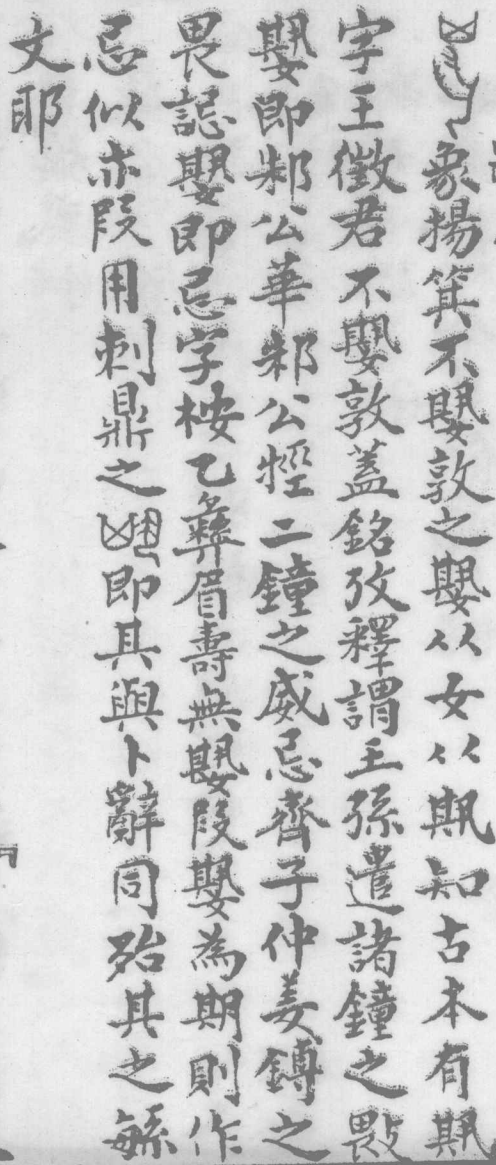 象揚箕不𡢁敦之𡢁从女从知古本有
字王徵君不𡢁敦蓋銘攷釋謂王孫遣諸鐘之
𡢁即邾公華邾公牼二鐘之威忌齊子仲姜鎛之
畏誋𡢁即忌字桉乙彝眉壽無𡢁叚𡢁為期則作
忌似亦叚用刺鼎之即其與卜辭同殆其之緐
文耶